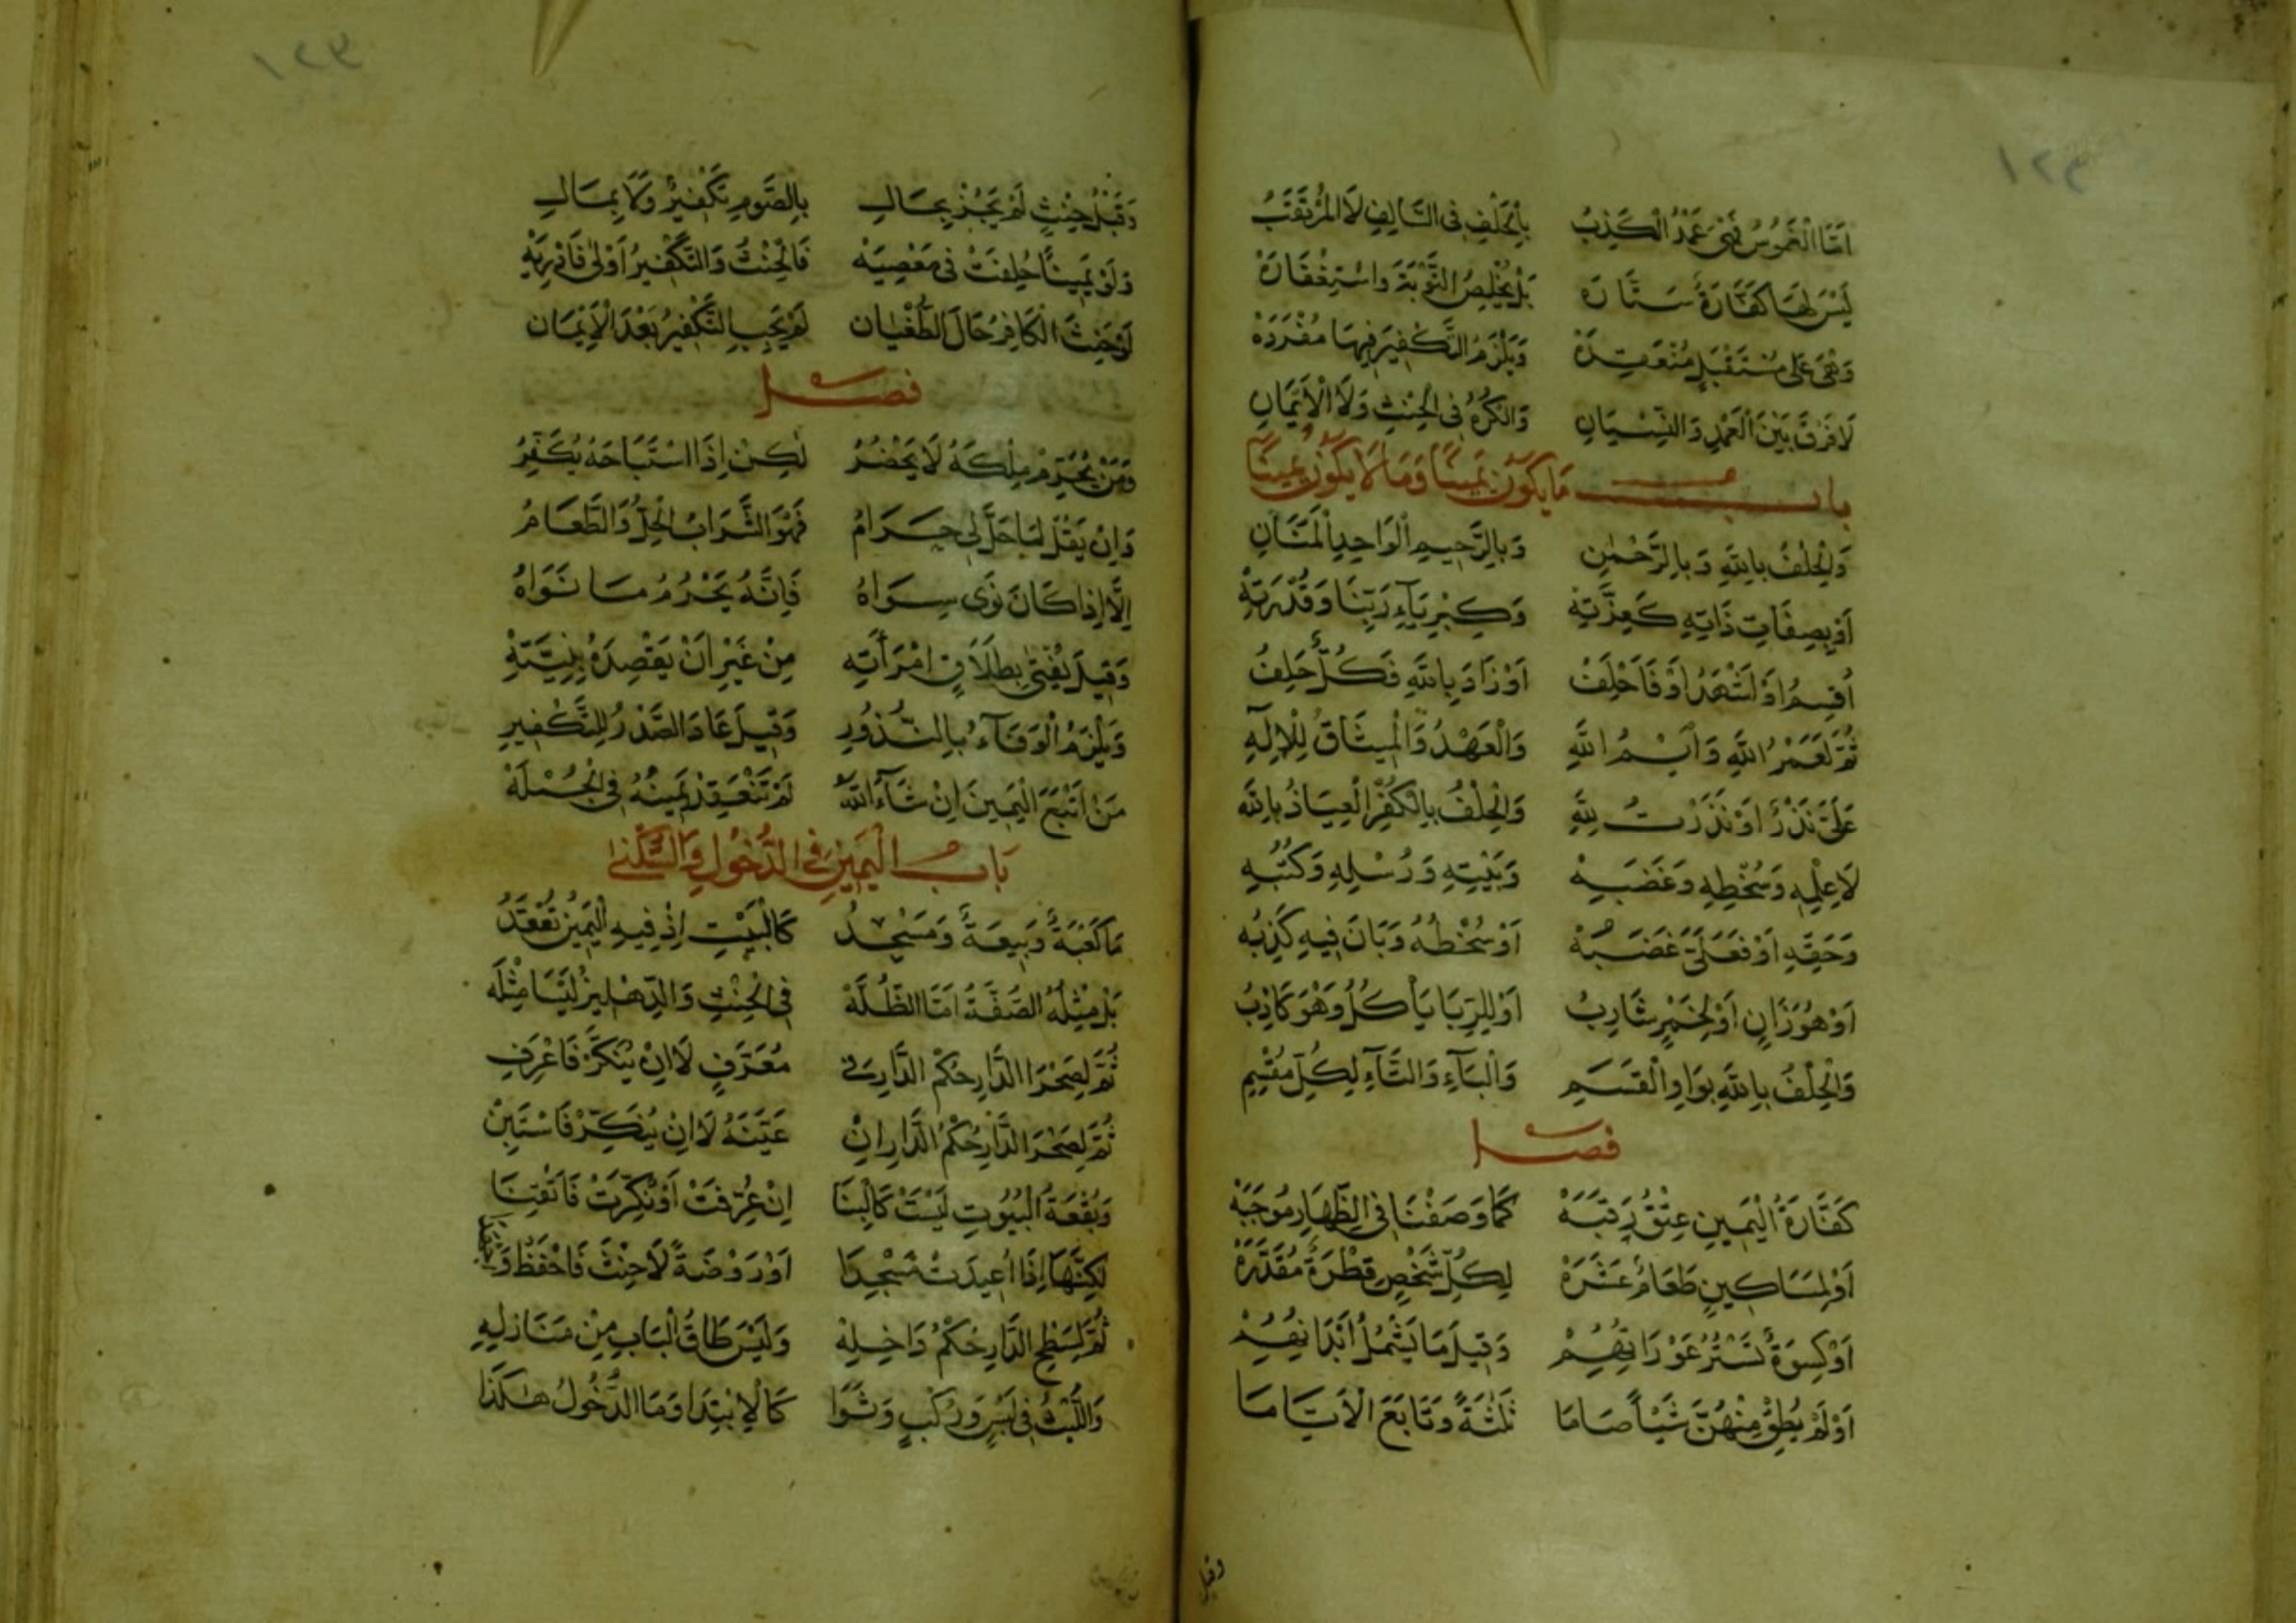 اَمَّا الْغَمُوسُ فَهْيَ عَمْدُ الْكَذِبْ بِالْحَلْفِ فِى السَّالِفِ لَا الْمُرْتَقَبْ
لَيْسَ لَهَا كَفَّارَةٌ سَتَّارَهْ بَلْ يُخْلِصُ التَّوْبَةَ وَاسْتِغْفَارَهْ
وَهْىَ عَلَى مُسْتَقْبَلٍ مُنْعَقِدَهْ وَيَلْزَمُ التَّكْفِيرُ فِيهَا مُفْرَدَهْ
لَا فَرْقَ بَيْنَ الْعَمْدِ وَالنِّسْيَانِ وَالْكُرْهِ فِى الْحِنْثِ وَلَا الْاَيْمَانِ
باب مَا يَكُونُ يَمِينًا وَمَا لَا يَكُونُ يَمِينًا
وَالْحِلْفُ بِاللّٰهِ وَبِالرَّحْمٰنِ وَبِالرَّحِيمِ الْوَاحِدِ الْمَنَّانِ
اَوْ بِصِفَاتِ ذَاتِهِ كَعِزَّتِهْ وَكِبْرِيَاءِ رَبِّنَا وَقُدْرَتِهْ
اُقْسِمُ اَوْ اَشْهَدُ اَوْ فَاَحْلِفُ اَوْ زَادَ بِاللّٰهِ فَكُلٌّ حَلِفُ
ثُمَّ لَعَمْرُ اللّٰهِ وَاَيْمُ اللّٰهِ وَالْعَهْدُ وَالْمِيثَاقُ لِلْاِلٰهِ
عَلَىَّ نَذْرٌ اَوْ نَذَرْتُ لِلّٰهِ وَالْحِلْفُ بِالْكُفْرِ الْعِيَاذُ بِاللّٰهِ
لَا عِلْمِهِ وَسُخْطِهِ وَغَضَبِهْ وَبَيْتِهِ وَرُسْلِهِ وَكُتُبِهِ
وَحَقِّهِ اَوْ فَعَلَىَّ غَضَبُهْ اَوْ سُخْطُهُ وَبَانَ فِيهِ كَذِبُه
اَوْ هُوَ زَانٍ اَوْ لِخَمْرٍ شَارِبُ اَوْ لِلرِّبَا يَأْكُلُ وَهْوَ كَاذِبُ
وَالْحِلْفُ بِاللّٰهِ بِوَاوِ الْقَسَمِ وَالْبَاءِ وَالتَّاءِ لِكُلِّ مُقْسِمِ
فصل
كَفَّارَةُ الْيَمِينِ عِتْقُ رَقَبَهْ كَمَا وَصَفْنَا فِى الظِّهَارِ مُوجَبَهْ
اَوْ لِمَسَاكِينٍ طَعَامُ عَشَرَهْ لِكُلِّ شَخْصٍ فِطْرَةٌ مُقَدَّرَهْ
اَوْ كِسْوَةٌ تَسْتُرُ عَوْرَاتِهُمْ وَقِيلَ مَا يَشْمُلُ اَبْدَانِهُمْ
اَوْ لَمْ يُطِقْ مِنْهُنَّ شَيْأً صَامَا ثَلٰثَةً وَتَابَعَ الْاَيَّامَا
وقبل
وَقَبْلَ حِنْثٍ لَمْ يَجُزْ بِحَالِ بِالصَّوْمِ تَكْفِيرٌ وَلَا بِمَالِ
وَلَوْ يَمِينًا حُلِفَتْ فِى مَعْصِيَهْ فَالْحِنْثُ وَالتَّكْفِيرُ اَوْلٰى فَادْرِيَهْ
لَوْ حَنِثَ الْكَافِرُ حَالَ الطُّغْيَان لَمْ يَجِبِ التَّكْفِيرُ بَعْدَ الْاِيْمَان
فصل
وَمَنْ يُحَرِّمْ مِلْكَهُ لَا يَحْضُرُ لٰكِنْ اِذَا اسْتَبَاحَهُ يُكَفِّرُ
وَاِنْ يَقُلْ مَا حَلَّ لِى حَرَامُ فَهْوَ الشَّرَابُ الْحِلُّ وَالطَّعَامُ
اِلَّا اِذَا كَانَ نَوَى سِوَاهُ فَاِنَّهُ يَحْرُمُ مَا نَوَاهُ
وَقِيلَ يُفْتٰى بِطَلَاقِ امْرَأَتِهِ مِنْ غَيْرِ اَنْ يَقْصِدَهُ بِنِيَّتِهْ
وَيَلْزَمُ الْوَفَاءُ بِالنُّذُورِ وَقِيلَ عَادَ الصَّدْرُ لِلتَّكْفِيرِ
مَنْ اَتْبَعَ الْيَمِينَ اِنْ شَاءَ اللّٰهُ لَمْ تَنْعَقِدْ يَمِينُهُ فِى الْجُمْلَهْ
بَابُ الْيَمِينِ فِى الدُّخُولِ وَالسُّكْنٰى
مَا كَعْبَةٌ وَبِيعَةٌ وَمَسْجِدُ كَالْبَيْتِ اِذْ فِيهِ الْيَمِينُ تُعْقَدُ
بَلْ مِثْلُهُ الصُّفَّةُ اَمَّا الظُّلَّهْ فِى الْحِنْثِ وَالدِّهْلِيزُ لَيْسَا مِثْلَه
ثُمَّ لِصَحْرَا الدَّارِ حُكْمُ الدَّارِ فِى مُعَرَّفٍ لَا اِنْ يُنَكَّرْ فَاعْرِفِ
ثُمَّ لِصَحْرَ الدَّارِ حُكْمُ الدَّارِ اِنْ عَيَّنَهُ لَا اِنْ يُنَكِّرْ فَاسْتَبِنْ
وَبُقْعَةُ الْبُيُوتِ لَيْسَتْ كَالْبِنَا اِنْ عُرِّفَتْ اَوْ نُكِّرَتْ
لٰكِنَّهَا اِذَا اُعِيدَتْ مَسْجِدَا اَوْ رَوْضَةً لَا حِنْثَ فَاحْفَظْ
ثُمَّ لِسَطْحِ الدَّارِ حُكْمُ دَاخِلِهْ وَلَيْسَ طَاقُ الْبَابِ مِنْ مَنَازِلِهِ
وَاللُّبْثُ فِى لُبْسٍ وَرَكْبٍ وَثَوَا كَالْاِبْتِدَا وَمَا الدُّخُولُ هٰكَذَا